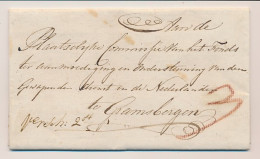 Aan de
Plaatselijke Commissie van het Fonds
ter aanmoediging en Ondersteuning van den
Gewapenden Dienst in de Nederlanden
te Gramsbergen
3